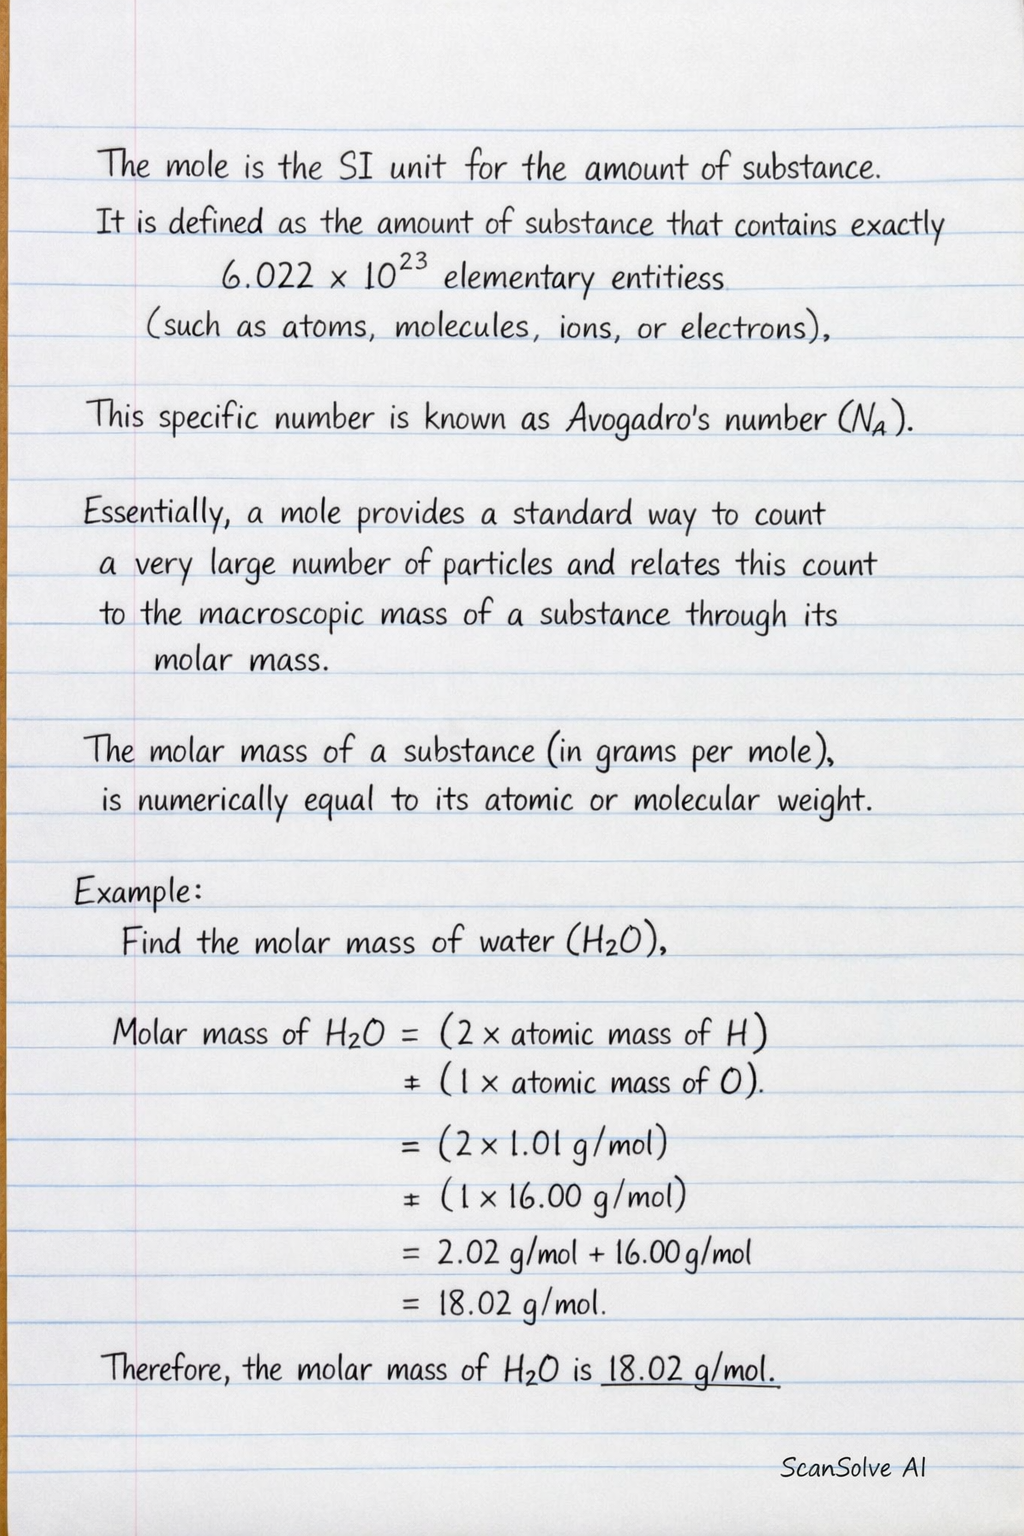 The mole is the SI unit for the amount of substance.
It is defined as the amount of substance that contains exactly
6.022 × 10²³ elementary entitiess
(such as atoms, molecules, ions, or electrons),
This specific number is known as Avogadro's number (N_A).
Essentially, a mole provides a standard way to count
a very large number of particles and relates this count
to the macroscopic mass of a substance through its
molar mass.
The molar mass of a substance (in grams per mole),
is numerically equal to its atomic or molecular weight.
Example:
Find the molar mass of water (H₂O),
Molar mass of H₂O = (2 × atomic mass of H)
± (1 × atomic mass of O).
= (2 × 1.01 g/mol)
± (1 × 16.00 g/mol)
= 2.02 g/mol + 16.00 g/mol
= 18.02 g/mol.
Therefore, the molar mass of H₂O is 18.02 g/mol.
ScanSolve AI